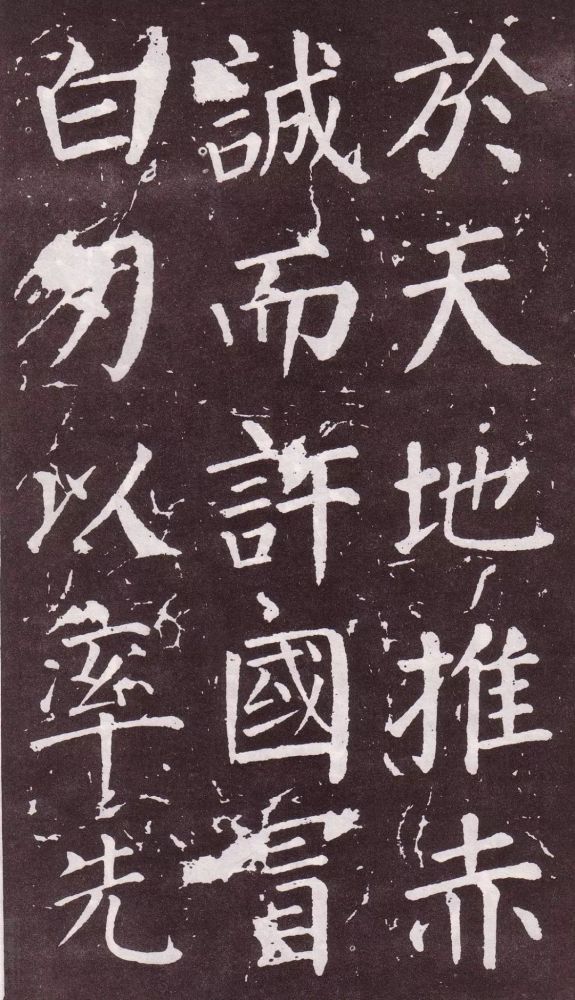 於天地推赤
誠而許國冒
白刃以率先